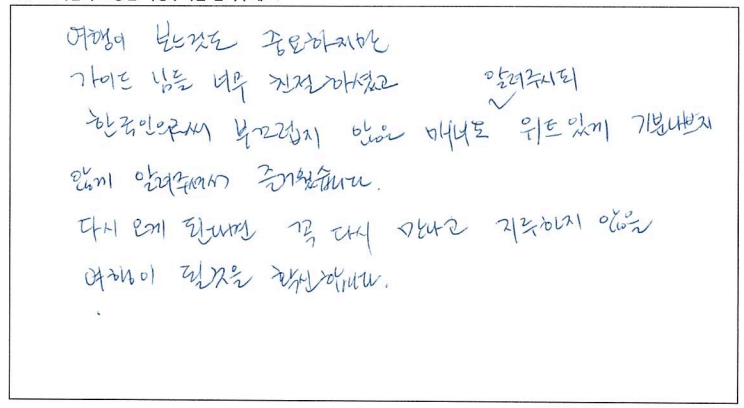 여행이 보는것도 중요하지만
가이드 님들 너무 친절하셨고 알려주시되
한국인으로써 부끄럽지 않은 매너도 위트있게 기분나쁘지
않게 알려주셔서 즐거웠습니다.
다시 오게 된다면 꼭 다시 만나고 지루하지 않을
여행이 될것을 확신합니다.